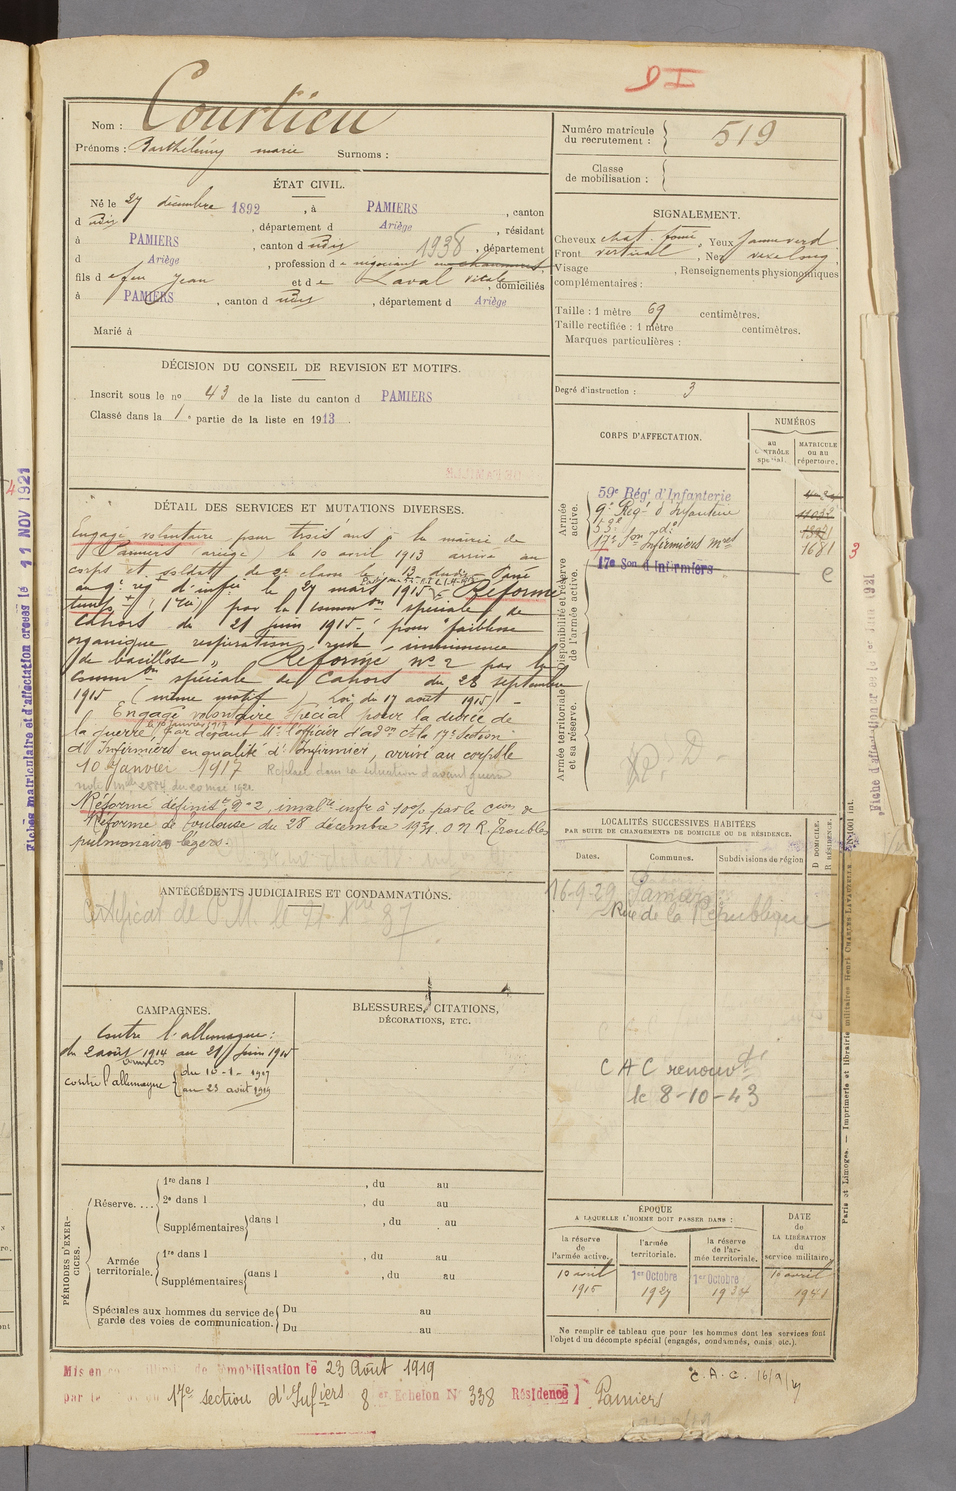 Nom : Courtieu
Prénoms : Barthélémy marie Surnoms :
Numéro matricule du recrutement : 519
Classe de mobilisation :
ÉTAT CIVIL.
Né le 27 décembre 1892, à PAMIERS, canton
d udit, département d Ariège, résidant
à PAMIERS, canton d udit 1938, département
d Ariège, profession d e négociant en chaussures,
fils d e feu Jean et d e Laval domiciliés
à PAMIERS, canton d udit, département d Ariège
Marié à
SIGNALEMENT.
Cheveux chat. foncé, Yeux jaune verd.
Front vertical, Nez vexe long,
Visage , Renseignements physionomiques
complémentaires :
Taille : 1 mètre 69 centimètres.
Taille rectifiée : 1 mètre centimètres.
Marques particulières :
Degré d'instruction : 3
DÉCISION DU CONSEIL DE REVISION ET MOTIFS.
Inscrit sous le no 43 de la liste du canton d PAMIERS
Classé dans la 1e partie de la liste en 1913.
DÉTAIL DES SERVICES ET MUTATIONS DIVERSES.
Engagé volontaire pour trois ans à la mairie de
Pamiers (ariège) le 10 avril 1913 arrivé au
corps et soldat de 2e classe le 13 dudit Passé
au 9e rég d'inf le 27 mars 1915 Réformé
temps (1re) par la common spéciale de
Cahors du 21 juin 1915 - pour "faiblesse
organique, respiration rude, imminence
de bacillose" Réformé no 2 par la
commion spéciale de Cahors du 28 septembre
1915 (même motif Loi du 17 août 1915) -
Engagé volontaire spécial pour la durée de
la guerre, le 10 janvier 1917 par devant Mr l'officier d'adon et la 17e section
d'Infirmiers en qualité d'Infirmier, arrivé au corps le
10 Janvier 1917 Replacé dans sa situation d'avant guerre
note mlle 2884 du 20 mai 1921
Réformé définitt no 2, invalté infre à 10% par la Cion de
Réforme de Toulouse du 28 décembre 1931. O N R. Troubles
pulmonaires légers.
ANTÉCÉDENTS JUDICIAIRES ET CONDAMNATIONS.
Certificat de P.M. le 21 87
CAMPAGNES.
Contre l'allemagne :
du 2 août 1914 au 21 juin 1915
contre l'allemagne du 10-1-1917
au 23 août 1919
BLESSURES, CITATIONS,
DÉCORATIONS, ETC.
CORPS D'AFFECTATION.
NUMÉROS
au CONTRÔLE spécial.
MATRICULE ou au répertoire.
Armée active.
59e Régt d'Infanterie
9e Régt d'Infanterie 11032
17e Son Infirmiers mres 1681 3
Disponibilité et réserve de l'armée active.
17e Son d'Infirmiers
Armée territoriale et sa réserve.
LOCALITÉS SUCCESSIVES HABITÉES
PAR SUITE DE CHANGEMENTS DE DOMICILE OU DE RÉSIDENCE.
D DOMICILE.
R RÉSIDENCE.
Dates. Communes. Subdivisions de région
16-9-29 Pamiers
Rue de la République
CAC renouv
le 8-10-43
PÉRIODES D'EXERCICES.
Réserve....
1re dans l , du au
2e dans l , du au
Supplémentaires dans l , du au
Armée territoriale.
1re dans l , du au
Supplémentaires dans l , du au
Spéciales aux hommes du service de garde des voies de communication.
Du au
Du au
ÉPOQUE
A LAQUELLE L'HOMME DOIT PASSER DANS :
la réserve de l'armée active. l'armée territoriale. la réserve de l'armée territoriale.
DATE de LA LIBÉRATION du service militaire.
10 avril 1916 1er Octobre 1927 1er Octobre 1934 10 avril 1941
Ne remplir ce tableau que pour les hommes dont les services font
l'objet d'un décompte spécial (engagés, condamnés, omis, etc.).
Mis en démobilisation le 23 Août 1919
par le 17e section d'Infiers 8 Echelon No 338 Résidence Pamiers
C.A.C. 16/9/
Fiches matriculaire et d'affectation créées le 11 NOV 1921
Paris et Limoges. — Imprimerie et librairie militaires Henri CHARLES-LAVAUZELLE